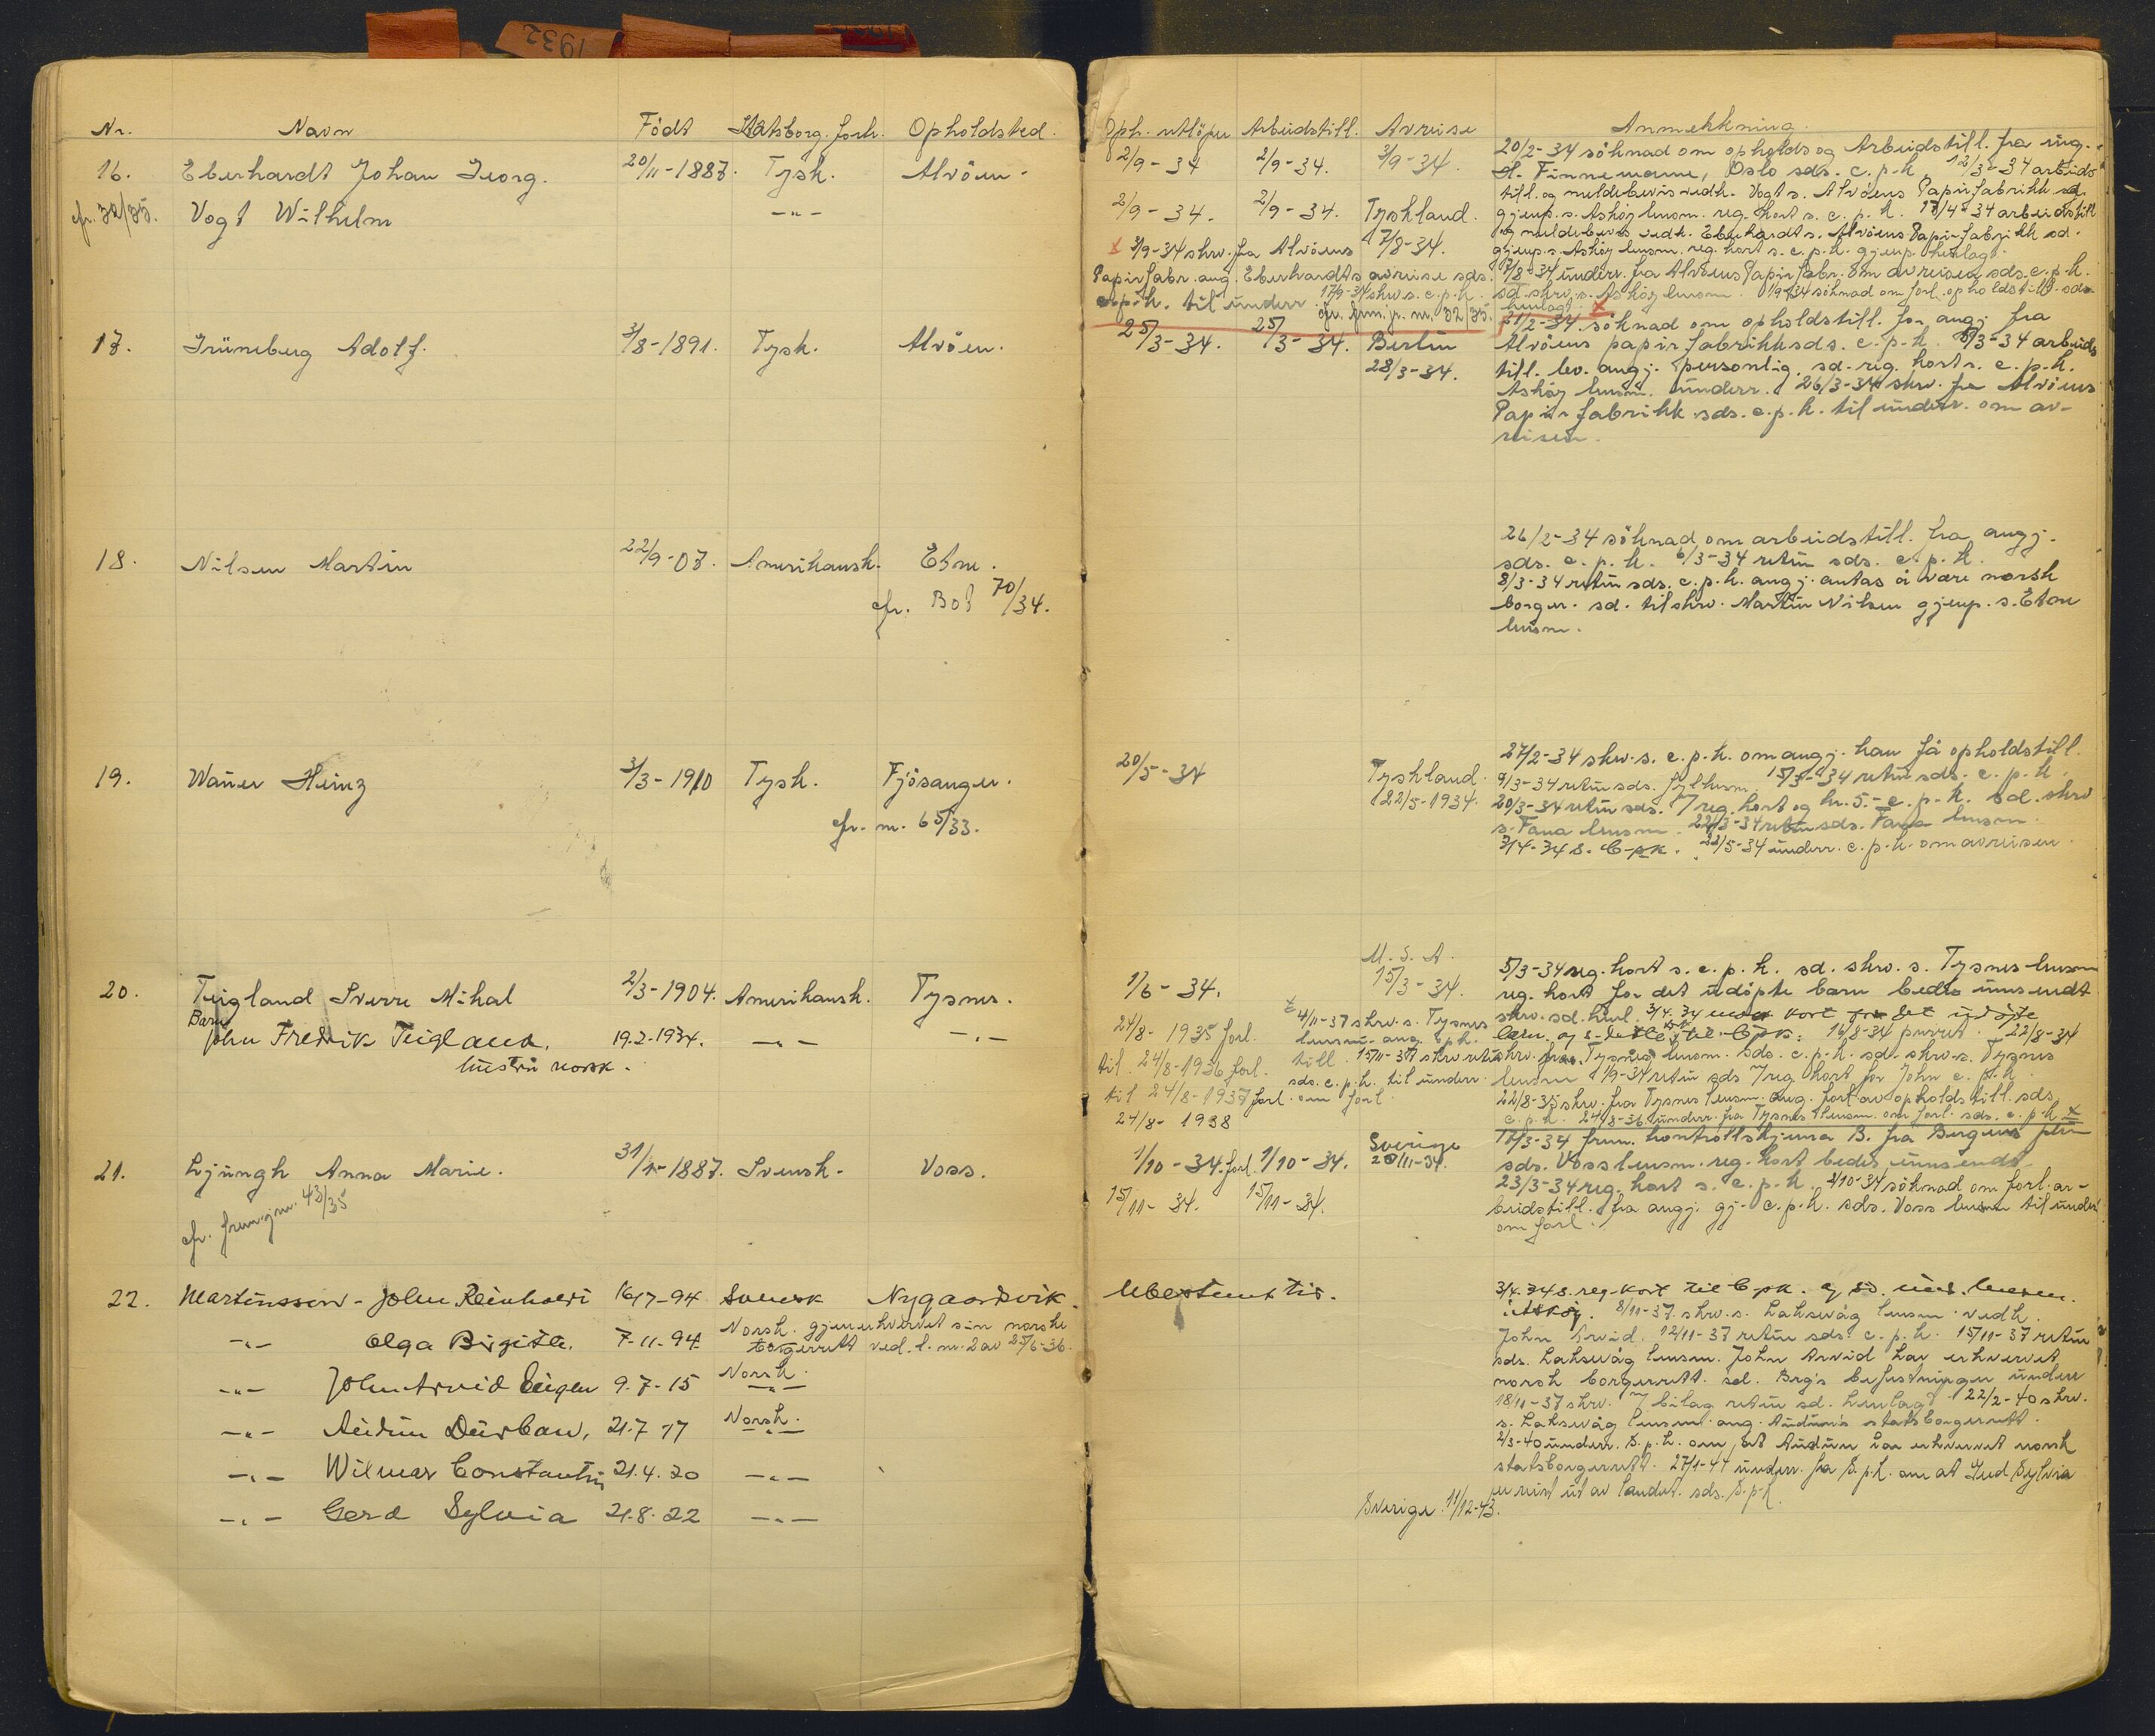 1932
Nr. Navn Født Statsborg. forh. Opholdsted.
16. Eberhardt Johan Georg. 20/11-1887. Tysk. Alvöen.
cfr. 32/35. Vogt Wilhelm -"-
17. Grüneberg Adolf. 3/8-1891. Tysk. Alvöen.
18. Nilsen Martin 22/9-07. Amerikansk. Etne.
cfr. Bob 70/34.
19. Wauer Heinz 3/3-1910 Tysk. Fjösanger.
cfr. nr. 65/33.
20. Teigland Sverre Mikal 2/3-1904. Amerikansk. Tysnes.
Barn
John Fredrik Teigland. 19.2-1934. -"- -"-
hustru norsk.
21. Ljungh Anna Marie. 31/ -1887. Svensk. Voss.
cfr. frem.jnr. 43/35
22. Martinsson - John Reinhold 16/7-94 Svensk Nygaardsvik.
-"- Olga Birgitte. 7-11-94 Norsk. gjenerhvervet sin norske
borgerrett ved l. nr. 2 av 25/6-36.
-"- John Arvid Eugen 9.7-15 Norsk.
-"-
-"- Audun Durban, 21.7 17 Norsk.
-"-
-"- Wilmar Constantin 21.4.20 -"-
-"- Gerd Sylvia 21.8.22 -"-
Oph. utlöper Arbeidstill. Avreise Anmerkning.
2/9-34 2/9-34. 3/9-34.
2/9-34. 2/9-34. Tyskland.
7/8-34.
x 3/9-34 skrv. fra Alvöens
Papirfabr. ang. Eberhardts avreise sds.
c.p.k. til underr. 17/9-34 skrv. s. c.p.k.
cfr. frem.jr. nr. 32/35.
20/2-34 söknad om opholds og Arbeidstill. fra ing.
A. Finnemann, Oslo sds. c.p.k. 12/3-34 arbeids
till. og meldebevis vedk. Vogt s. Alvöens Papirfabrikk sd.
gjenp. s. Askøy lensm. reg. kort s. c.p.k. 17/4-34 arbeidstill
og meldebevis vedk. Eberhardt s. Alvöens Papirfabrikk sd.
gjenp. s. Askøy lensm. reg. kort s. c.p.k. gjenp. henlagt.
17/8-34 underr. fra Alvöens Papirfabr. om avreisen sds. c.p.k.
sd. skrv. s. Askøy lensm. 1/9-34 söknad om forl. opholdstill. sds.
henlagt. x
25/3-34. 25/3-34. Berlin
28/3-34.
21/2-34 söknad om opholdstill. for angj. fra
Alvöens papirfabrikk sds. c.p.k. 8/3-34 arbeids
till. lev. angj. personlig. sd. reg. kort s. c.p.k.
Askøy lensm. underr. 26/3-34 skrv. fra Alvöens
Papirfabrikk sds. c.p.k. til underr. om av-
reisen.
26/2-34 söknad om arbeidstill. fra angj.
sds. c.p.k. 6/3-34 retur sds. c.p.k.
8/3-34 retur sds. c.p.k. angj. antas å være norsk
borger. sd. tilskrv. Martin Nilsen gjenp. s. Etne
lensm.
20/5-34 Tyskland.
22/5-1934.
27/2-34 skrv. s. c.p.k. om angj. kan få opholdstill.
9/3-34 retur sds. Fylkesm. 15/3-34 retur sds. c.p.k.
20/3-34 retur sds. 7 reg. kort og kr. 5.- c.p.k. sd. skrv
s. Fana lensm. 22/3-34 retur sds. Fana lensm.
3/4-34 s. C-pk. 22/5-34 underr. c.p.k. om avreisen.
1/6-34. U.S.A.
15/3-34.
24/8-1935 forl.
til 24/8-1936 forl.
til 24/8-1937 forl.
24/8-1938
x 4/11-37 skrv. s. Tysnes
lensm. ang. oph.
till. 15/11-37 skrv. retur
sds. c.p.k. til underr.
om forl.
5/3-34 reg. kort s. c.p.k. sd. skrv. s. Tysnes lensm
reg. kort for det udöpte barn bedes innsendt
skrv. sd. henl. 3/4.34 kort for det udöpte
barn og s. til Cpk. 16/8-34 purret. 22/8-34
skrv. fra Tysnes lensm. sds. c.p.k. sd. skrv. s. Tysnes
lensm 1/9-34 retur sds 7 reg kort for John c.p.k.
22/8-35 skrv. fra Tysnes lensm. ang. forl. av opholdstill. sds.
c.p.k. 24/8-36 underr. fra Tysnes lensm. om forl. sds. c.p.k. x
1/10-34. forl. 1/10-34. Sverige
20/11-34.
15/11-34. 15/11-34.
17/3-34 frem. kontrollskjema B. fra Bergens
sds. Voss lensm. reg. kort bedes innsendt
23/3-34 reg. kort s. c.p.k. 2/10-34 söknad om forl. ar-
beidstill. fra angj. gj. c.p.k. sds. Voss lensm til underr
om forl.
Ubestemt tid.
3/4.34 s. reg. kort til Cpk. og sd. lensm.
i Askøy. 8/11-37. skrv. s. Laksevåg lensm. vedk.
John Arvid. 12/11-37 retur sds. c.p.k. 15/11-37 retur
sds. Laksevåg lensm. John Arvid har erhvervet
norsk borgerrett. sd. Brg's befestninger underr
18/11-37 skrv. 7 bilag retur sd. henlagt. 22/2-40 skrv.
s. Laksevåg lensm. ang. Audun's statsborgerrett.
2/3-40 underr. S.p.k. om, at Audun har erhvervet norsk
statsborgerrett. 27/1-44 underr. fra S.p.k. om at Gerd Sylvia
er reist ut av landet. sds. S.p.k.
Sverige 11/12-43.